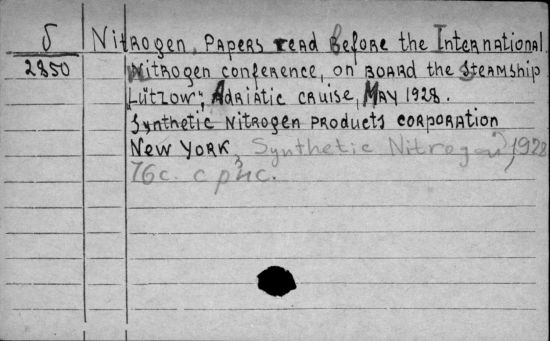 δ Nitrogen. Papers read before the International
2850 Nitrogen conference, on board the steamship
Lützow; Adriatic cruise, May 1928.
Synthetic Nitrogen Products corporation
New York, Synthetic Nitrogen, 1928
76c. с рис.